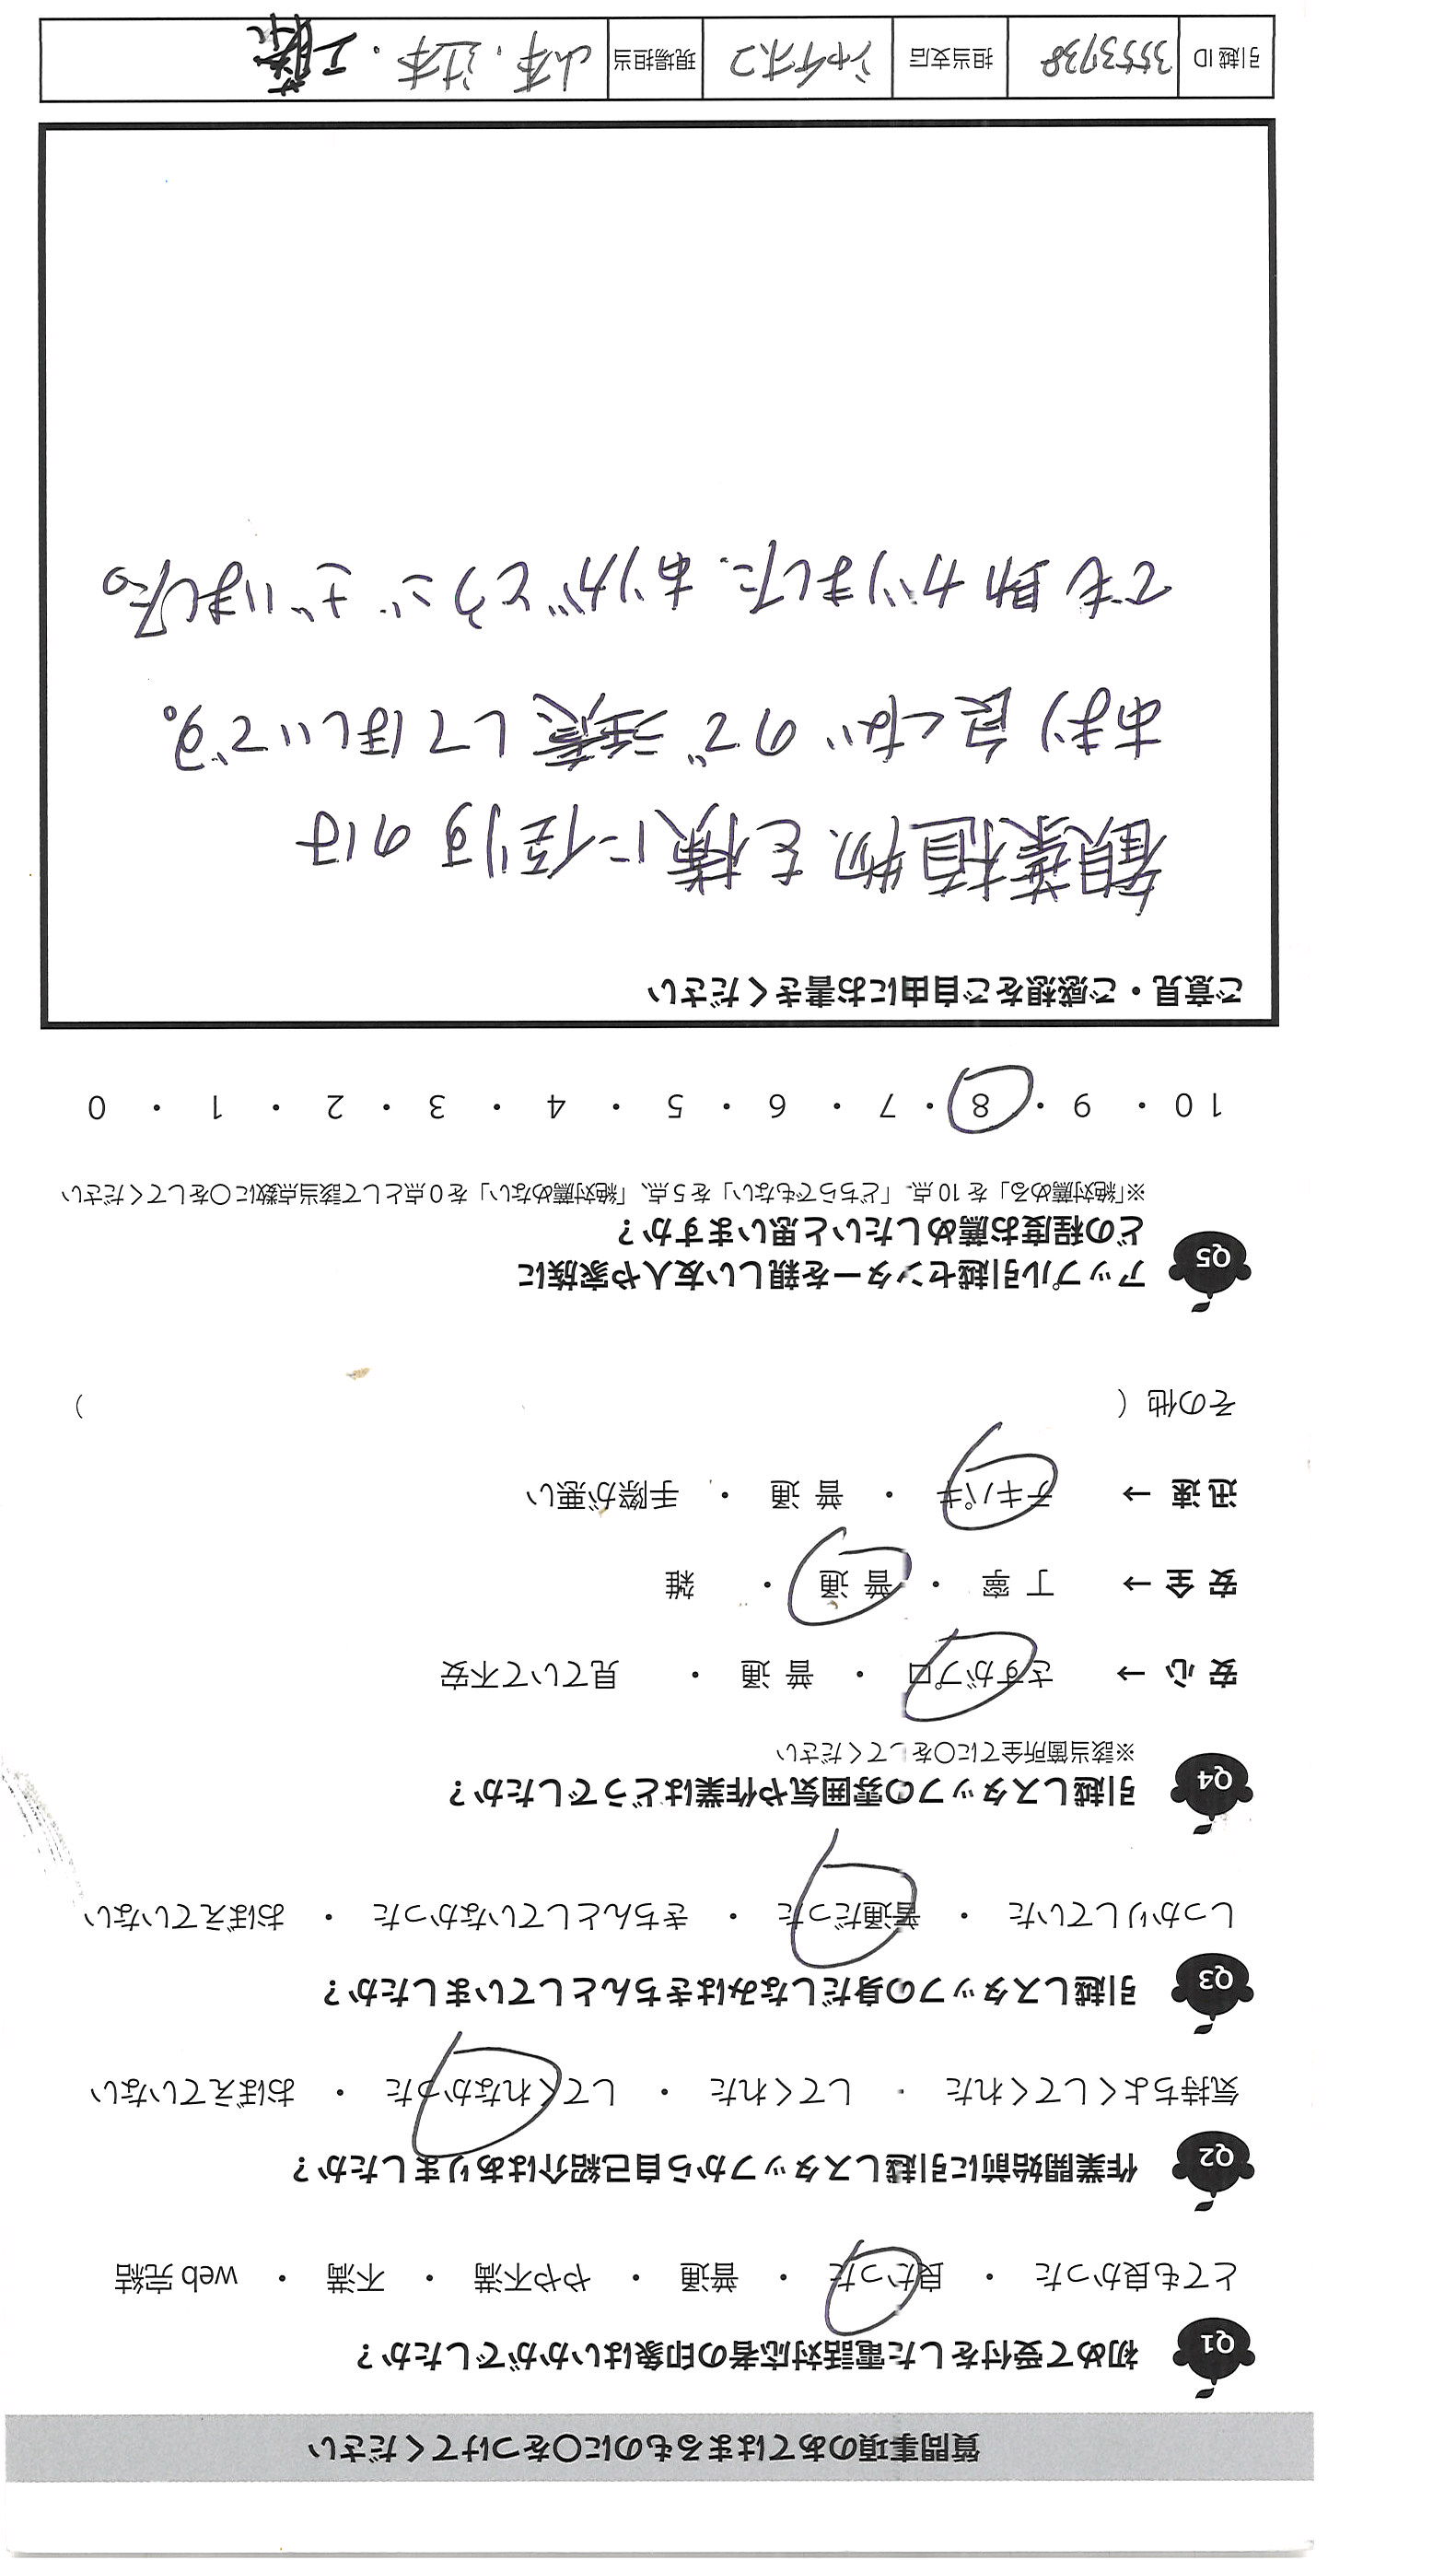 質問事項のあてはまるものに〇をつけてください
Q1 初めて受付をした電話対応者の印象はいかがでしたか？
とても良かった ・ 良かった ・ 普通 ・ やや不満 ・ 不満 ・ web 完結
Q2 作業開始前に引越しスタッフから自己紹介はありましたか？
気持ちよくしてくれた ・ してくれた ・ してくれなかった ・ おぼえていない
Q3 引越しスタッフの身だしなみはきちんとしていましたか？
しっかりしていた ・ 普通だった ・ きちんとしていなかった ・ おぼえていない
Q4 引越しスタッフの雰囲気や作業はどうでしたか？
※該当箇所全てに〇をしてください
安 心 → さすがプロ ・ 普 通 ・ 見ていて不安
安 全 → 丁 寧 ・ 普 通 ・ 雑
迅 速 → テキパキ ・ 普 通 ・ 手際が悪い
その他（ ）
Q5 アップル引越センターを親しい友人や家族に
どの程度お薦めしたいと思いますか？
※「絶対薦める」を 10 点、「どちらでもない」を 5 点、「絶対薦めない」を 0 点として該当点数に〇をしてください
10 ・ 9 ・ 8 ・ 7 ・ 6 ・ 5 ・ 4 ・ 3 ・ 2 ・ 1 ・ 0
ご意見・ご感想をご自由にお書きください
観葉植物を横に倒すのは
あまり良くないので注意してほしいです。
でも助かりました。ありがとうございました。
引越 ID 3553738 担当支店 ジャイオコ 現場担当 山本．辻本．工藤